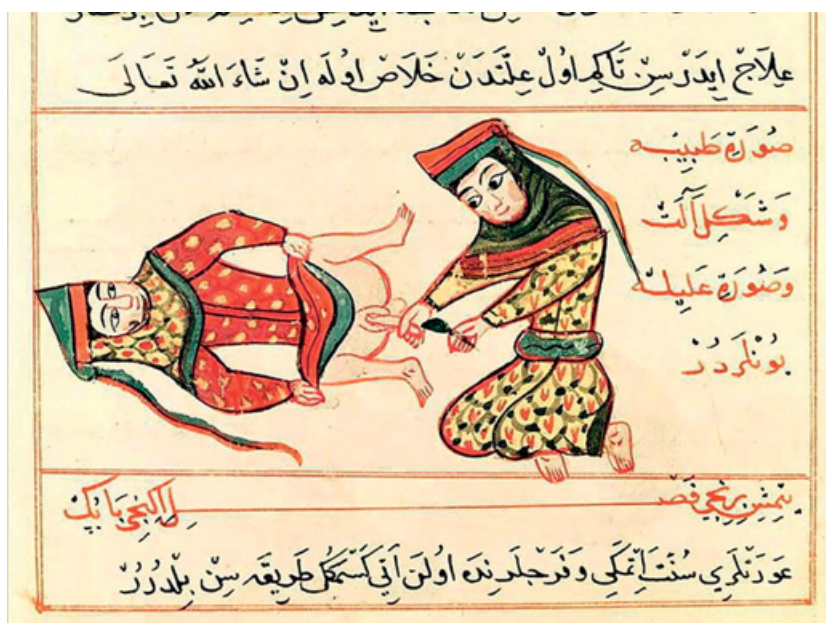 عِلَاجْ ايدَرْ سِنْ تَاكِمْ اوُلْ عِلَّتْدَنْ خَلَاصْ اوُلَه اِنْ شَاءَ اللّٰهُ تَعَالَى
صُورَةِ طَبِيبَه
وَشَكْلِ آلَتْ
وَصُورَةِ عَلِيلَه
بُونْلَردُرْ
يِتْمِشْ بِرِنْجِي فَصْل اِكِنْجِي بَابُكْ
عَوْرَتْلَرِي سُنَّتْ اِتْمَكِي وَفَرْجْلَرِنْدَه اوُلَنْ اَتِي كَسْمَكُكْ طَرِيقَه سِنْ بِلْدُرُرْ